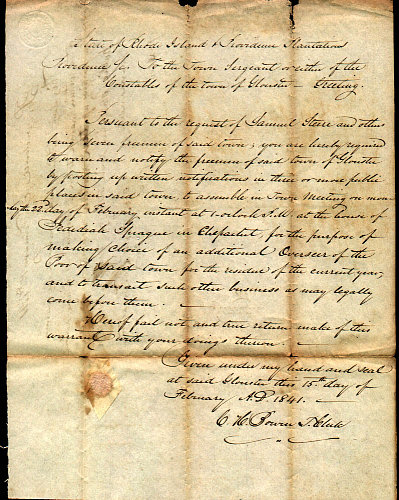 State of Rhode Island & Providence Plantations
Providence Sc. To the Town Sergeant or either of the
Constables of the town of Glocester – Greeting.
Pursuant to the request of Samuel Steere and others
being seven freemen of said town, you are hereby required
to warn and notify the freemen of said town of Glocester
by posting up written notifications in three or more public
places in said town, to assemble in Town Meeting on mon-
day the 22d day of February instant at 1 o'clock P.M. at the house of
Jedediah Sprague in Chepachet, for the purpose of
making choice of an additional Overseer of the
Poor of said town for the residue of the current year,
and to transact such other business as may legally
come before them.
Hereof fail not and true return make of this
warrant with your doings thereon.
Given under my hand and seal
at said Glocester this 15th day of
February A.D. 1841.
C. H. Bowen T. Clerk